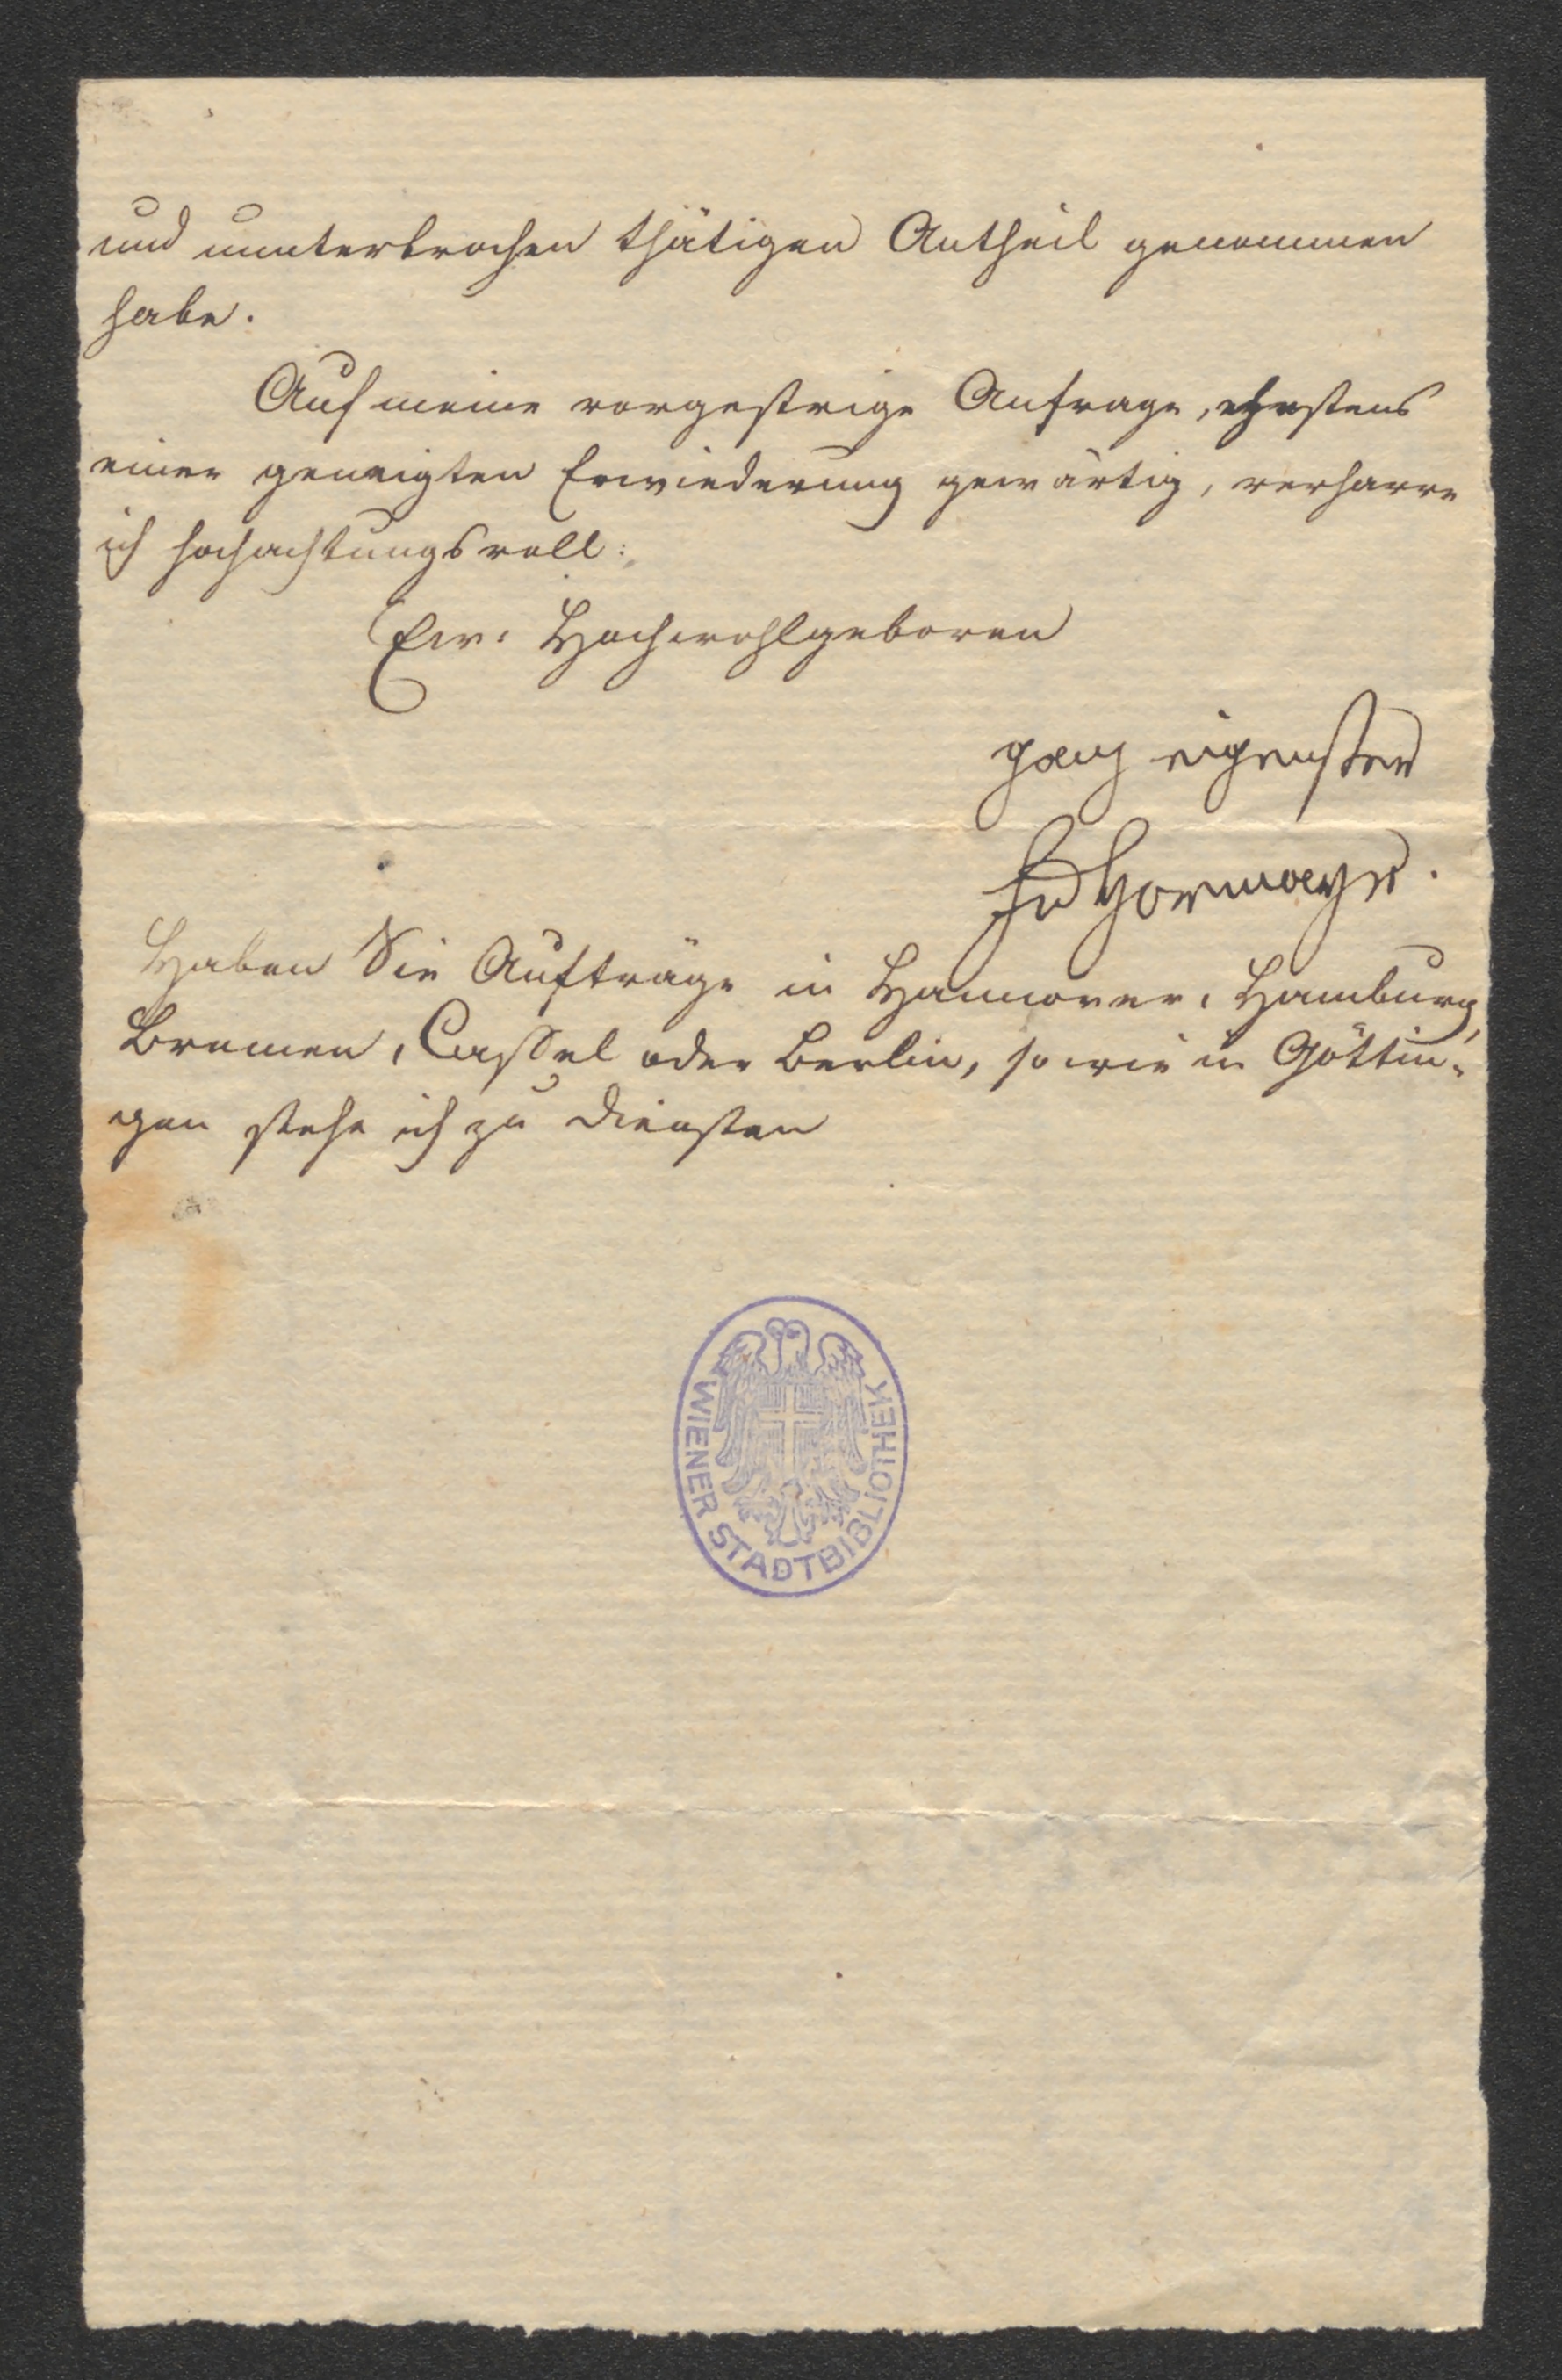 und ununterbrochen thätigen Antheil genommen
habe.
Auf meine vorgestrige Anfrage, ehestens
einer geneigten Erwiederung gewärtig, verharre
ich hochachtungsvoll:
Ew: Hochwohlgeboren
ganz eigenster
Hormayr.
Haben Sie Aufträge in Hannover, Hamburg,
Bremen, Cassel oder Berlin, so wie in Göttin-
gen stehe ich zu Diensten
WIENER STADTBIBLIOTHEK